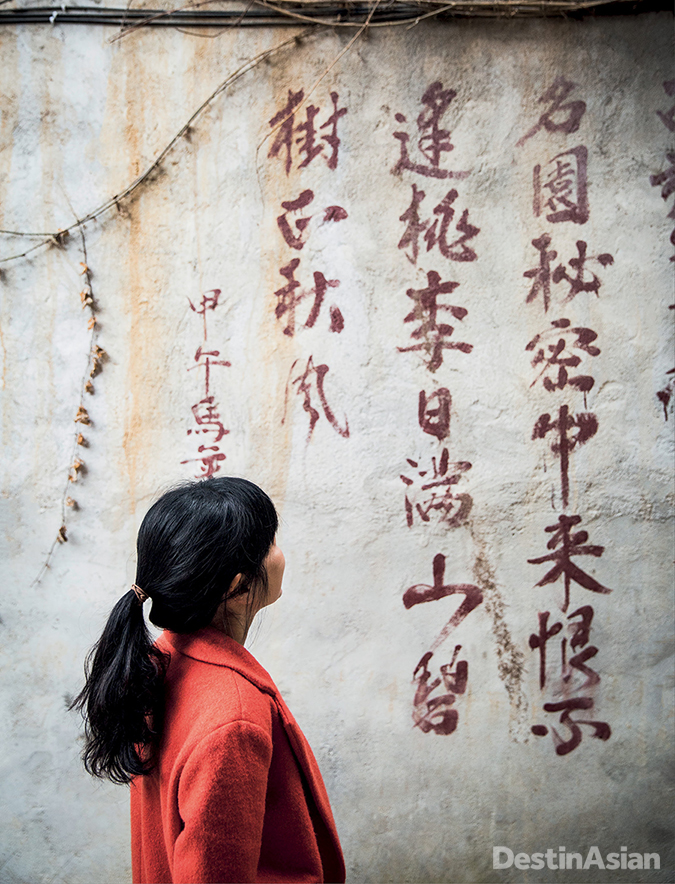 名園秘密中来恨不
逢桃李日滿山碧
樹正秋風
甲午馬
DestinAsian